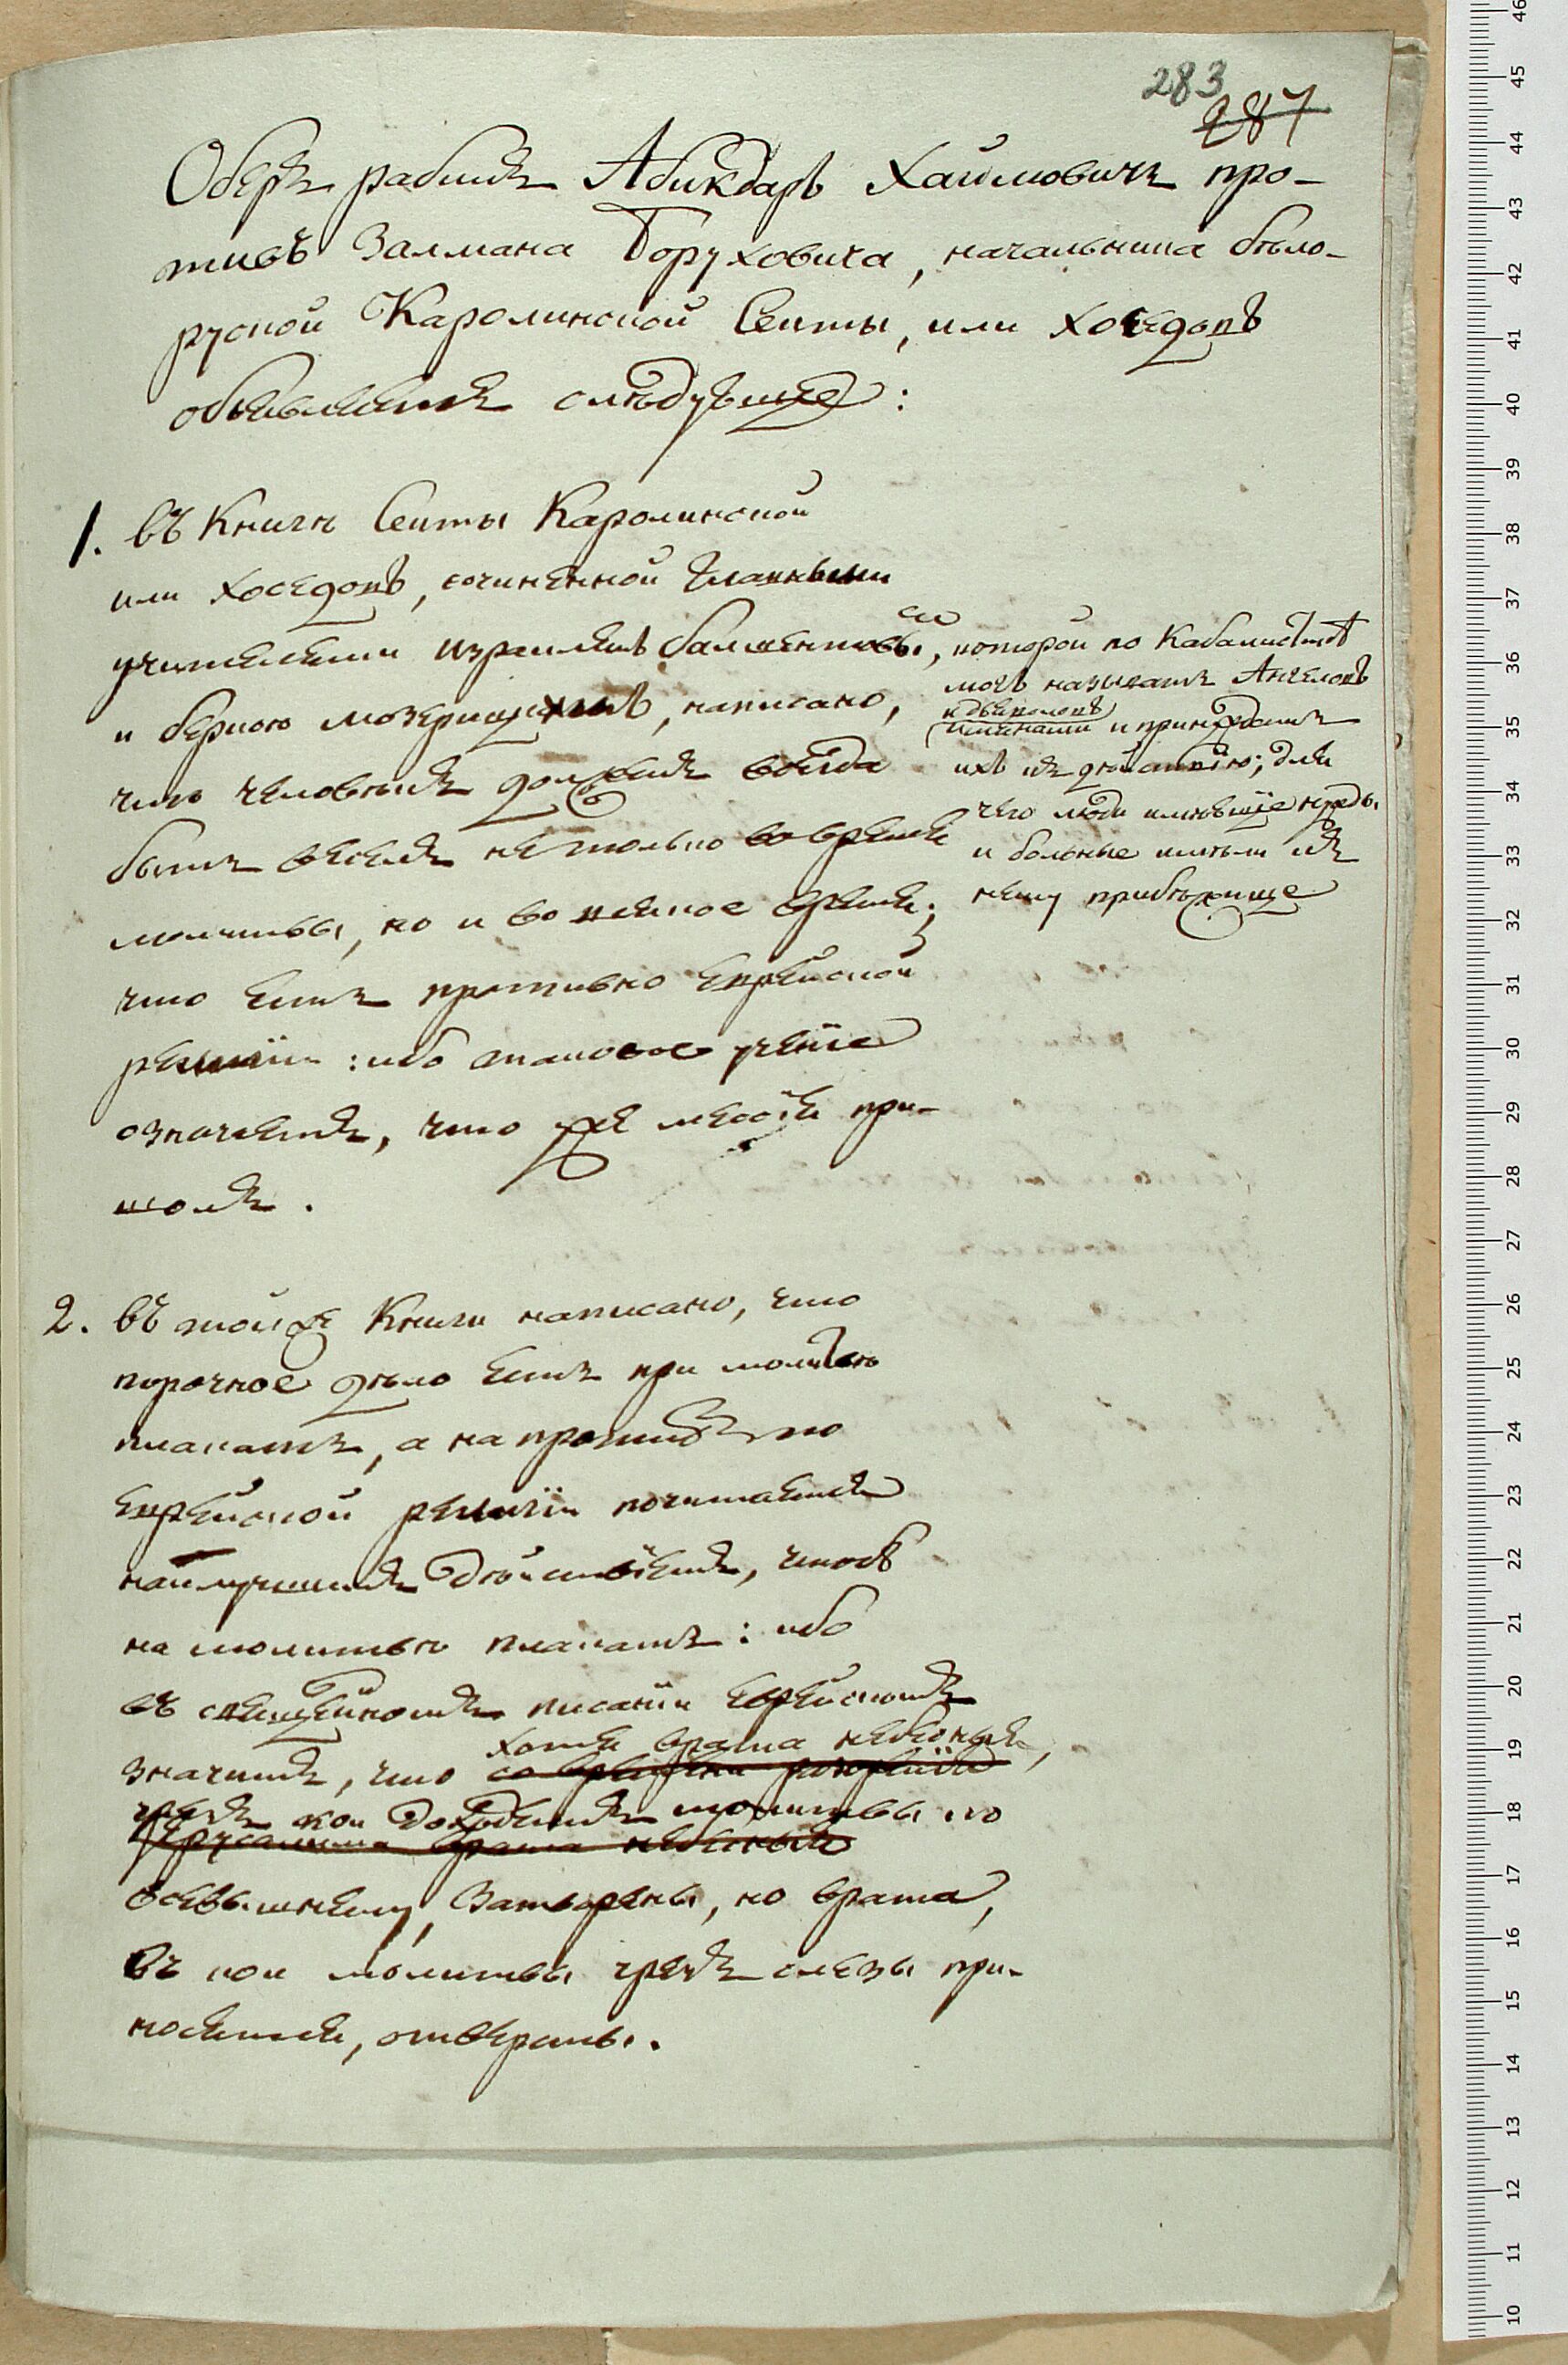 283
287
Оберъ рабинъ Абикдаръ Хаимовичъ про-
тивъ Залмана Боруховича, начальника бѣло-
руской Каролинской Секты, или Хоседовъ
объявляетъ слѣдующее:
1. въ Книгѣ Секты Каролинской
или Хоседовъ, сочиненной Главными
учителями Израилемъ балшентовымъ,
и беркою мозерицкимъ, написано,
что человѣкъ долженъ всегда
быть веселъ не только во время
молитвы, но и во всякое время;
что есть противно Еврейской
религіи: ибо таковое ученіе
означаетъ, что уже мессія при-
шолъ.
которой по Кабалистикѣ
могъ называть Ангеловъ
и дьяволовъ
именами и принуждать
ихъ къ дѣйствію; для
чего люди имѣвшіе нужды
и больные имѣли къ
нему прибѣжище
2. въ той же Книги написано, что
порочное дѣло есть при молитвѣ
плакать, а на противъ по
Еврейской религіи почитается
наилучшимъ дѣйствіемъ, чтобъ
на молитвѣ плакать: ибо
въ священномъ писаніи Еврейскомъ
хотя врата небесныя,
значитъ, что со времени разоренія
чрезъ кои доходятъ молитвы ко
Іерусалима врата небесныя
всевышнему, затворены, но врата,
въ кои молитвы чрезъ слезы при-
носятся, отверсты.